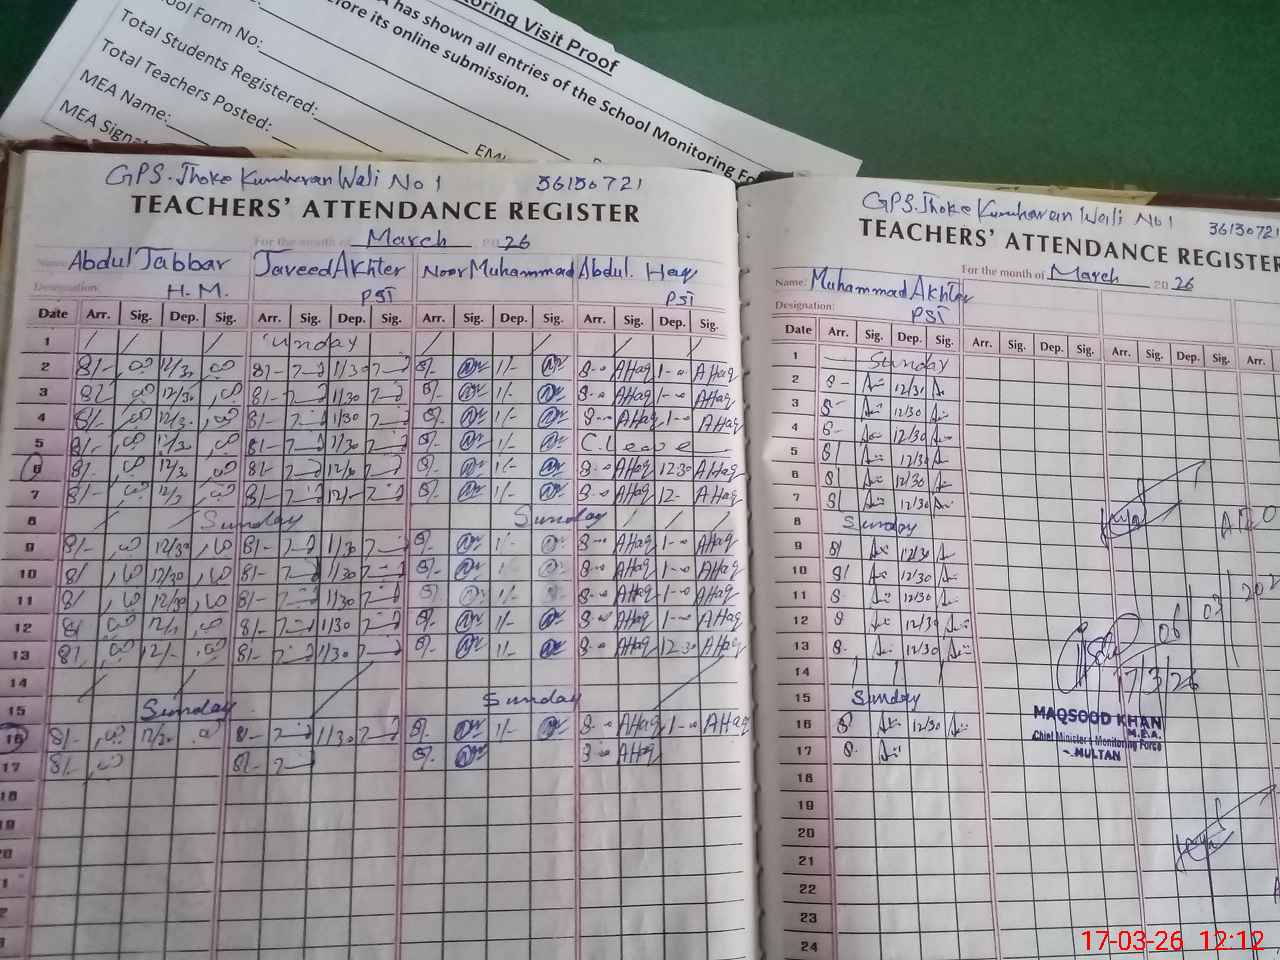 oring Visit Proof
has shown all entries of the School Monitoring Fo
fore its online submission.
ool Form No:
Total Students Registered:
Total Teachers Posted:
MEA Name:
MEA Signat
GPS. Jhoke Kumharan Wali No 1 36130721
TEACHERS' ATTENDANCE REGISTER
For the month of March 2026
Name: Abdul Jabbar Javeed Akhter Noor Muhammad Abdul. Haq
Designation: H.M. PST PST
Date Arr. Sig. Dep. Sig. Arr. Sig. Dep. Sig. Arr. Sig. Dep. Sig. Arr. Sig. Dep. Sig.
1 Sunday
2 8/- 12/30 8/- 1/30 8/- 1/- 8-00 AHaq 1-00 AHaq
3 8/- 12/30 8/- 1/30 8/- 1/- 8-00 AHaq 1-00 AHaq
4 8/- 12/30 8/- 1/30 8/- 1/- 8-00 AHaq 1-00 AHaq
5 8/- 12/30 8/- 1/30 8/- 1/- C. Leave
6 8/- 12/30 8/- 12/30 8/- 1/- 8-00 AHaq 12-30 AHaq
7 8/- 8/- 12/- 8/- 1/- 8-00 AHaq 12- AHaq
8 Sunday Sunday
9 8/- 12/30 8/- 1/30 8/- 1/- 8-00 AHaq 1-00 AHaq
10 8/ 12/30 8/- 1/30 8/- 8-00 AHaq 1-00 AHaq
11 8/ 12/30 8/- 1/30 8/- 8-00 AHaq 1-00 AHaq
12 8/ 8/- 1/30 8/- 1/- 8-00 AHaq 1-00 AHaq
13 8/ 12/- 8/- 1/30 8/- 1/- 8-00 AHaq 12-30 AHaq
14
15 Sunday Sunday
16 8/- 12/30 8/- 1/30 8/- 1/- 8-00 AHaq 1-00 AHaq
17 8/- 8/- 8/- 8-00 AHaq
18
19
20
GPS. Jhoke Kumharan Wali No 1 36130721
TEACHERS' ATTENDANCE REGISTER
For the month of March 2026
Name: Muhammad Akhter
Designation: PST
Date Arr. Sig. Dep. Sig. Arr. Sig. Dep. Sig. Arr. Sig. Dep. Sig. Arr.
1 Sunday
2 8- 12/30
3 8- 12/30
4 8- 12/30
5 8/ 12/30
6 8/ 12/30
7 8/ 12/30
8 Sunday
9 8/ 12/30
10 8/ 12/30
11 8- 12/30
12 8 12/30
13 8- 12/30
14
15 Sunday
16 8- 12/30
17 8-
18
19
20
21
22
23
24
17/3/26
MAQSOOD KHAN
M.E.A.
Chief Minister's Monitoring Force
MULTAN
17-03-26 12:12